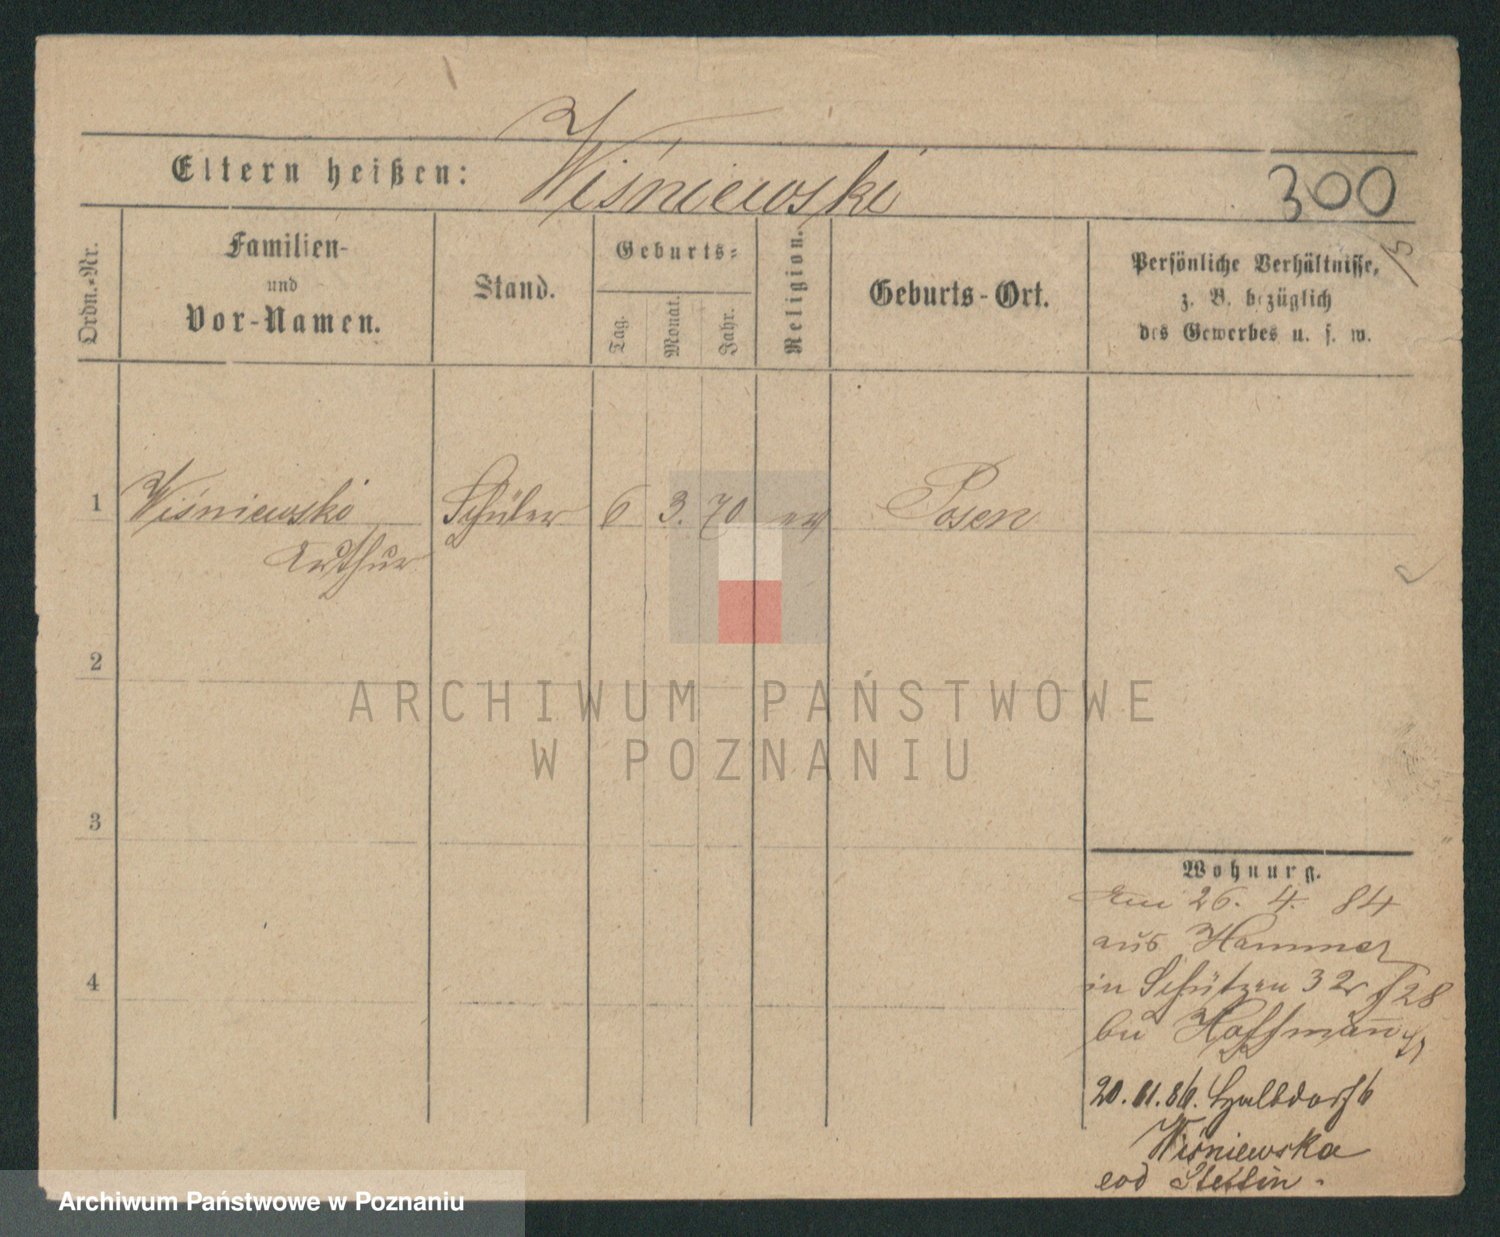 Eltern heißen: Wiśniewski
300
Ordn.-Nr.
Familien-
und
Vor-Namen.
Stand.
Geburts-
Tag.
Monat.
Jahr.
Religion.
Geburts-Ort.
Persönliche Verhältnisse,
z. B. bezüglich
des Gewerbes u. s. w.
1 Wiśniewski Schüler 6 3. 70 ev Posen
Arthur
2
ARCHIWUM PAŃSTWOWE
W POZNANIU
3
Wohnung.
Am 26. 4. 84
aus Hammer
in Schützen 32 28
bei Hoffmann
4
20. 01. 86. Halbdorf 6
Wiśniewska
eod Stettin.
Archiwum Państwowe w Poznaniu